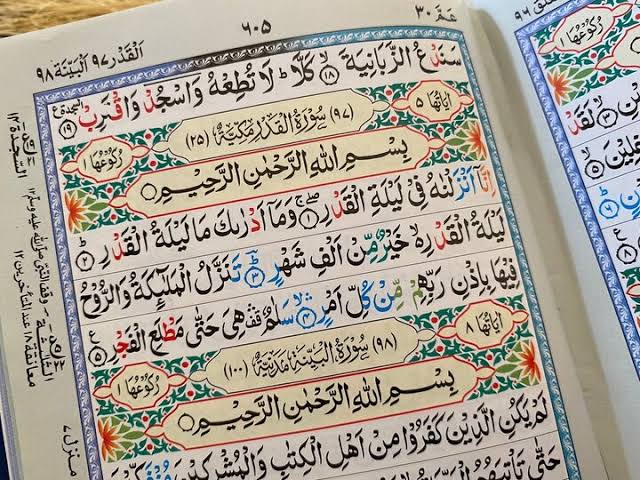 عمّ ٣٠
٦٠٥
القدر ٩٧ البينة ٩٨
سَنَدْعُ الزَّبَانِيَةَ ۝١٨ كَلَّا ؕ لَا تُطِعْهُ وَاسْجُدْ وَاقْتَرِبْ ۝١٩
اٰيَاتُهَا ٥
(٩٧) سُوْرَةُ الْقَدْرِ مَكِّيَّةٌ (٢٥)
رُكُوْعُهَا ١
بِسْمِ اللّٰهِ الرَّحْمٰنِ الرَّحِيْمِ
اِنَّاۤ اَنْزَلْنٰهُ فِيْ لَيْلَةِ الْقَدْرِ ۝١ وَمَاۤ اَدْرٰىكَ مَا لَيْلَةُ الْقَدْرِ ۝٢
لَيْلَةُ الْقَدْرِ ەۙ خَيْرٌ مِّنْ اَلْفِ شَهْرٍ ۝٣ تَنَزَّلُ الْمَلٰٓئِكَةُ وَالرُّوْحُ
فِيْهَا بِاِذْنِ رَبِّهِمْ مِّنْ كُلِّ اَمْرٍ ۝٤ سَلٰمٌ هِيَ حَتّٰى مَطْلَعِ الْفَجْرِ ۝٥
اٰيَاتُهَا ٨
(٩٨) سُوْرَةُ الْبَيِّنَةِ مَدَنِيَّةٌ (١٠٠)
رُكُوْعُهَا ١
بِسْمِ اللّٰهِ الرَّحْمٰنِ الرَّحِيْمِ
لَمْ يَكُنِ الَّذِيْنَ كَفَرُوْا مِنْ اَهْلِ الْكِتٰبِ وَالْمُشْرِكِيْنَ
حَتّٰى تَاْتِيَهُمُ
السجدة ١٤
وقف النبي صلى الله عليه وسلم ١٢
معانقة ١٨ عند المتأخرين ١٢
منزل ٧
٩٦
رُكُوْعُهَا ١
لَقَدْ